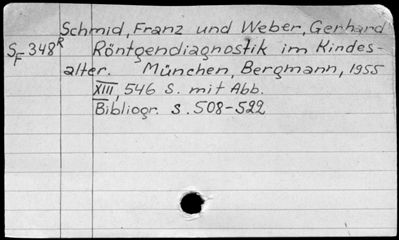 Schmid, Franz und Weber, Gerhard
S/F 348ᴿ Röntgendiagnostik im Kindes-
alter. München, Bergmann, 1955
XIII, 546 S. mit Abb.
Bibliogr. S. 508-522